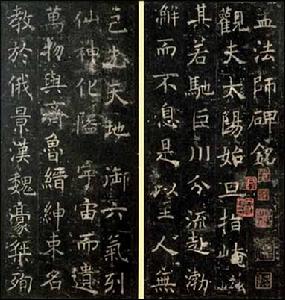 孟法師碑銘
觀夫太陽始旦指崦
其若馳巨川分流赴渤
澥而不息是以至人無
己先天地 御六氣列
仙神化隘宇宙而遺
萬物與齊魯縉紳束名
教於俄景漢魏豪桀殉